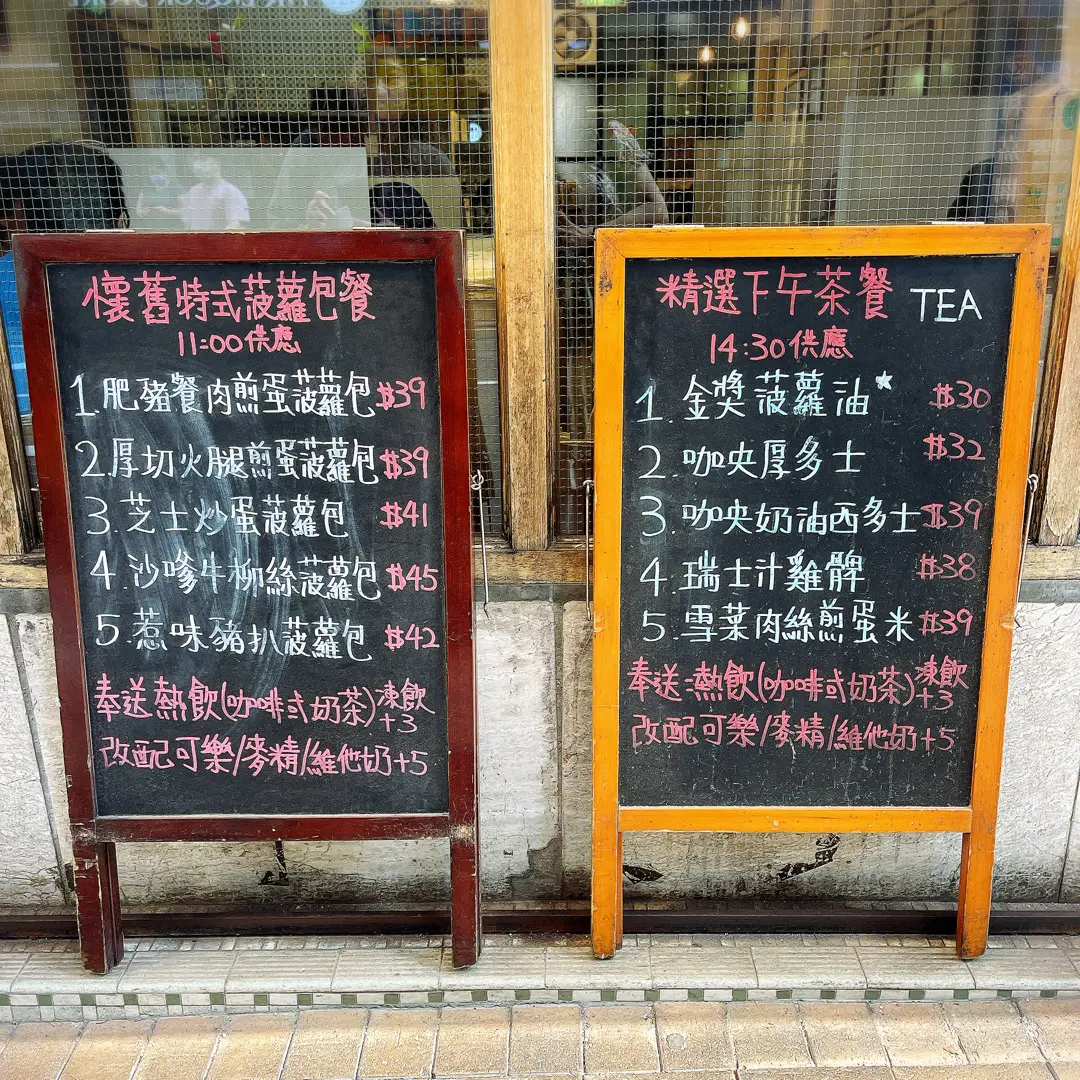 懷舊特式菠蘿包餐
11:00供應
1.肥豬餐肉煎蛋菠蘿包$39
2.厚切火腿煎蛋菠蘿包$39
3.芝士炒蛋菠蘿包 $41
4.沙嗲牛柳絲菠蘿包$45
5.惹味豬扒菠蘿包 $42
奉送熱飲(咖啡或奶茶)凍飲+3
改配可樂/麥精/維他奶+5
精選下午茶餐 TEA
14:30供應
1.金獎菠蘿油* $30
2.咖央厚多士 $32
3.咖央奶油西多士$39
4.瑞士汁雞髀 $38
5.雪菜肉絲煎蛋米$39
奉送:熱飲(咖啡或奶茶)凍飲+3
改配可樂/麥精/維他奶+5